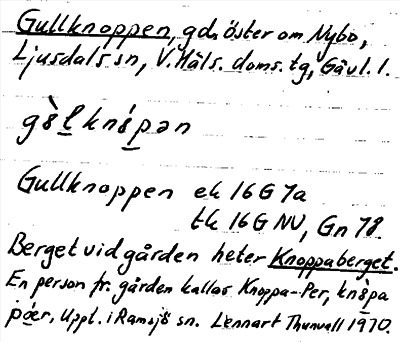 Gullknoppen, gd. öster om Nybo,
Ljusdals sn, V. Häls. doms. tg, Gävl. l.
Gullknoppen ek 16 G 7a
tk 16 G NV, Gn 78
Berget vid gården heter Knoppaberget.
En person fr. gården kallas Knoppa-Per, knòpa
pär, Uppt. i Ramsjö sn. Lennart Thunvall 1970.